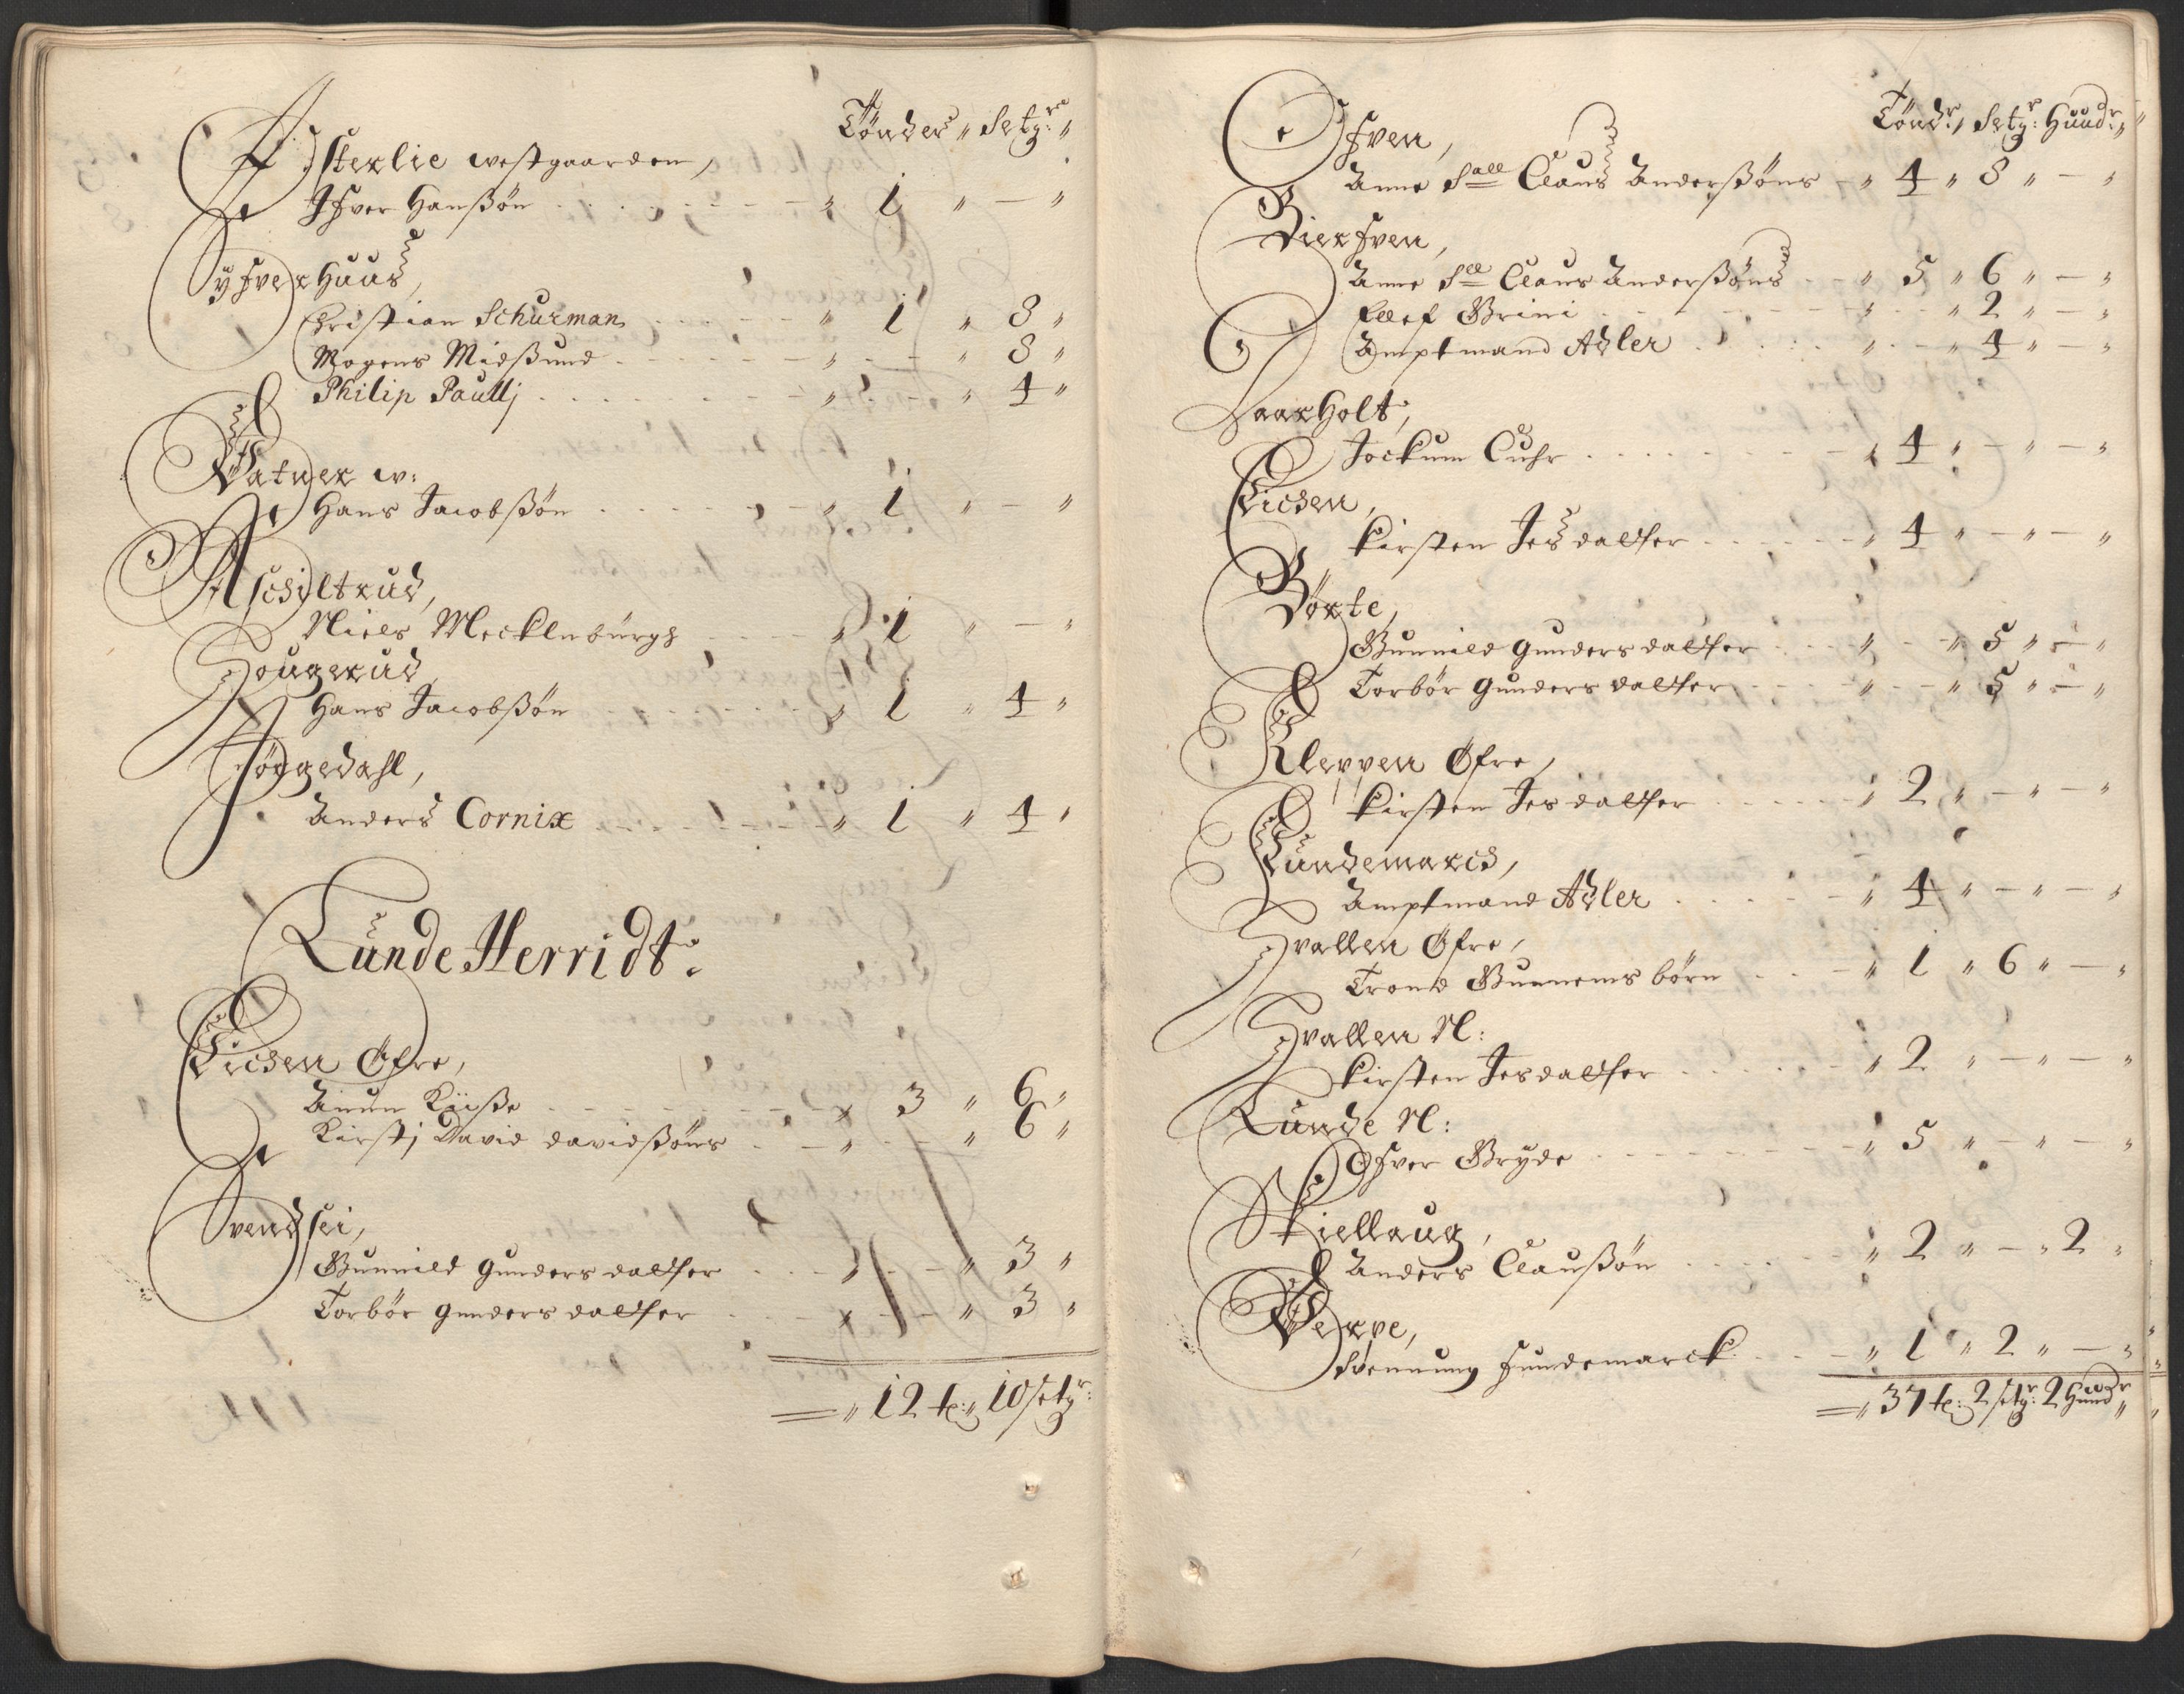 Tønder " Setg:r "
Østerlie westgaarden,
Ifver Hanßøn . . . . " 1 " — "
Syfverhuus,
Christian Schurman . . . . " 1 " 8 "
Mogens Midßund . . . . " — " 8 "
Philip Paullj . . . . " — " 4 "
Watner w:
Hans Jacobßøn . . . . " 1 " — "
Aschiltrud,
Niels Mecklnburgs . . . . " 1 " — "
Hougerud,
Hans Jacobßøn . . . . " 1 " 4 "
Jøggedahl,
Anders Cornix . . . . " 1 " 4 "
Lunde Herridt.
Eidsen Øfre,
Anun Kiiße . . . . " 3 " 6 "
Kirstj David davidßøns . . . . " — " 6 "
Svendsei,
Gunnild gunders datter . . . . " — " 3 "
Torbør gunders datter . . . . " — " 3 "
= " 12 t: " 10 setg:r
Tønd:r, Setg:r Hund:r "
Ofven,
Anne Sall Claus Anderßøns — " 4 " 8 " — "
Bierfven,
Anne Sll Claus Anderßøns . . " 5 " 6 " — "
Ellef Grini . . . . " — " 2 " — "
Amptmand Adler . . . . " — " 4 " — "
Haarholt,
Jockum Cuhr . . . . " 4 " — " — "
Eidsen,
Kirsten Jesdatter . . . . " 4 " — " — "
Børte,
Gunnild gunders datter . . . " — " 5 " — "
Torbør gunders datter . . . " — " 5 " — "
Kleppen Øfre,
Kirsten Jesdatter . . . . " 2 " — " — "
Lundemarck,
Amptmand Adler . . . . " 4 " — " — "
Hvallen Øfre,
Trond Gunnems børn . . . " 1 " 6 " — "
Hvallen N:
Kirsten Jesdatter . . . . " 2 " — " — "
Lunde N:
Ifver Bryde . . . . " 5 " — " — "
Skiellaug,
Anders Claußøn . . . . " 2 " — " 2 "
Werpe,
Svennung Lundemarck . . — " 1 " 2 " — "
= " 37 t: 2 setg:r 2 Hund:r "